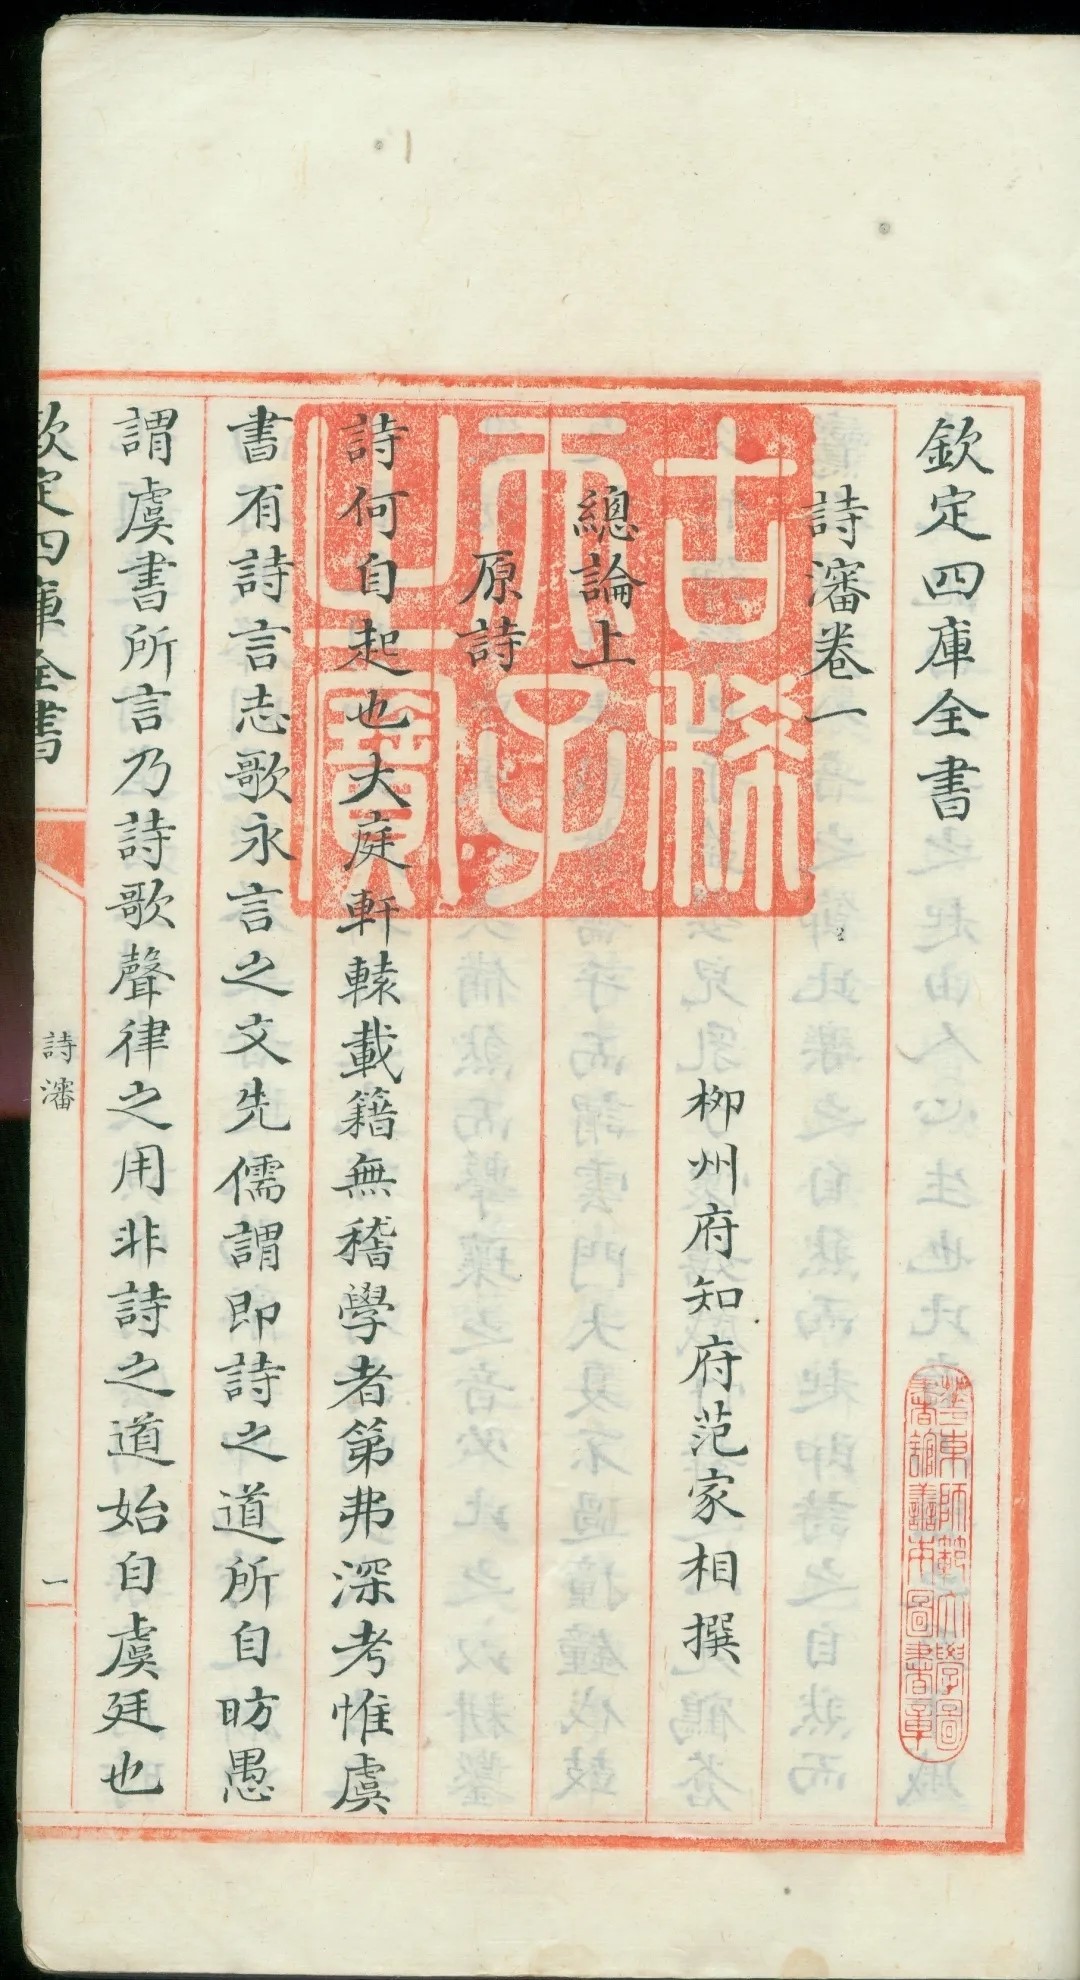 欽定四庫全書
詩瀋卷一
柳州府知府范家相撰
總論上
原詩
詩何自起也大庭軒轅載籍無稽學者第弗深考惟虞
書有詩言志歌永言之文先儒謂即詩之道所自昉愚
謂虞書所言乃詩歌聲律之用非詩之道始自虞廷也
欽定四庫全書
詩瀋
一
古稀天子之寶